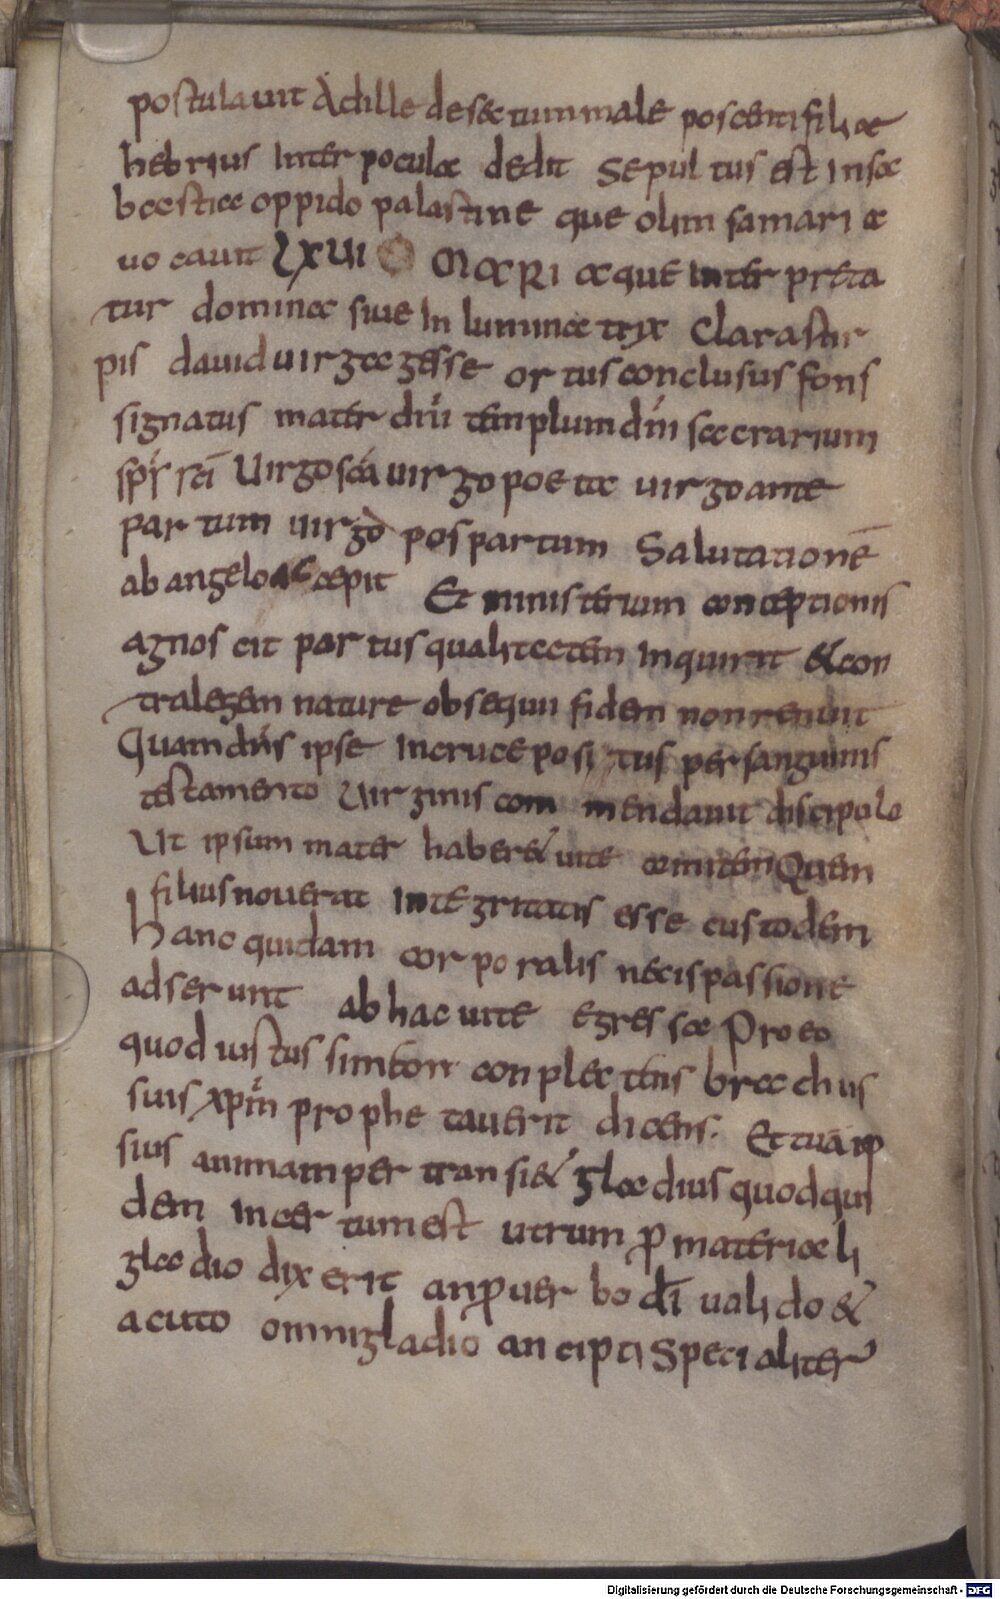 postulavit Achille desectum male poscenti filiae
hebrius Inter pocula dedit Sepultus est In sa
bastia oppido palastine que olim samaria
vocavit LXVI MARIa que Inter preta
tur domina sive In luminatrix Clara stir
pis david virga gesse ortus conclusus fons
signatus mater dni templum dni sacrarium
sps sci Virgo sca virgo poeta virgo ante
partum virgo pospartum Salutatione
ab angelo accepit Et ministerium conceptionis
agnoscit partus qualitatem Inquirit &con
tra legem nature obsequii fidem non renuit
Quam dns ipse In cruce positus per sanguinis
testamento Virginis commendavit discipulo
Ut ipsum mater haber& vite comitem Quem
filius noverat Integritatis esse custodem
Hanc quidam corporalis necis passione
adserunt ab hac vite egressa Pro eo
quod iustus simeon conplectens brachiis
suis xpm prophetaverit dicens. Et tua ip
sius animam per transi& gladius quod qui
dem Incertum est utrum p materiali
gladio dixerit an p verbo di valido &
acuto omni gladio ancipti Specialiter
Digitalisierung gefördert durch die Deutsche Forschungsgemeinschaft - DFG